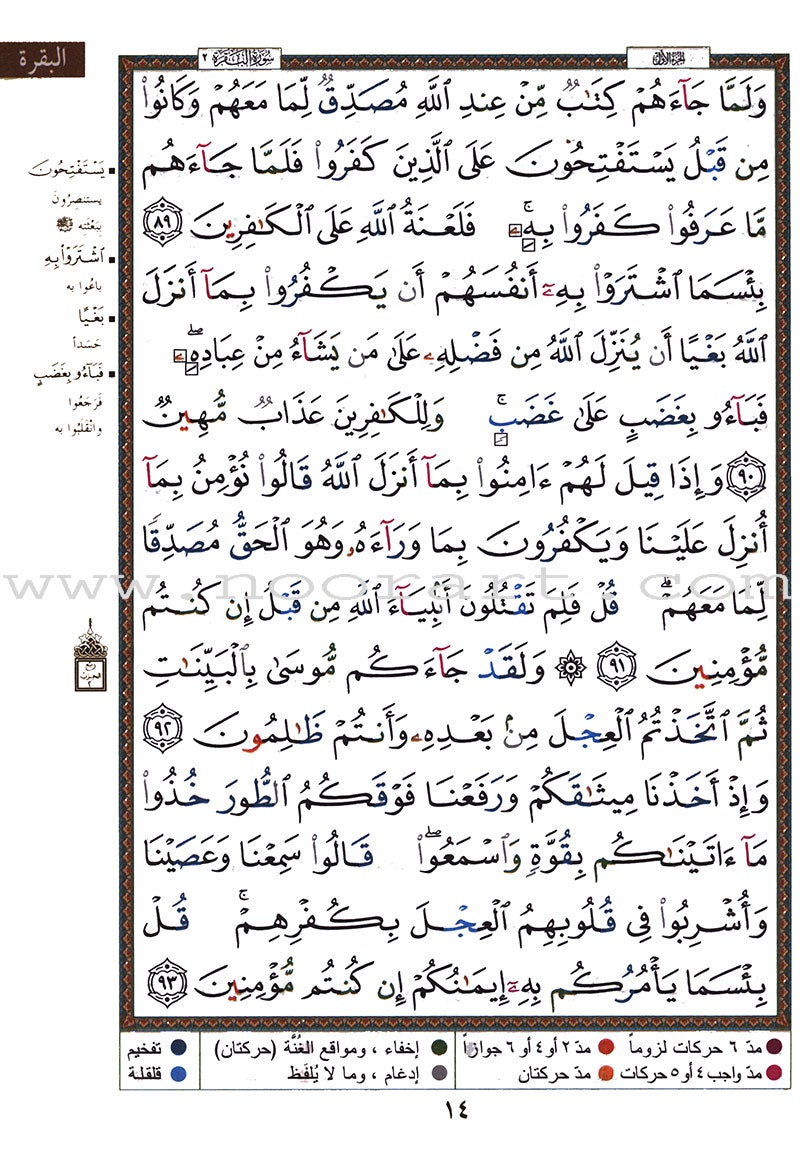 البقرة
سُورَةُ البَقَرَة ٢
الجزء الأول
وَلَمَّا جَآءَهُمْ كِتَٰبٌ مِّنْ عِندِ ٱللَّهِ مُصَدِّقٌ لِّمَا مَعَهُمْ وَكَانُوا۟
مِن قَبْلُ يَسْتَفْتِحُونَ عَلَى ٱلَّذِينَ كَفَرُوا۟ فَلَمَّا جَآءَهُم
مَّا عَرَفُوا۟ كَفَرُوا۟ بِهِۦ ۚ فَلَعْنَةُ ٱللَّهِ عَلَى ٱلْكَٰفِرِينَ ٨٩
بِئْسَمَا ٱشْتَرَوْا۟ بِهِۦٓ أَنفُسَهُمْ أَن يَكْفُرُوا۟ بِمَآ أَنزَلَ
ٱللَّهُ بَغْيًا أَن يُنَزِّلَ ٱللَّهُ مِن فَضْلِهِۦ عَلَىٰ مَن يَشَآءُ مِنْ عِبَادِهِۦ ۖ
فَبَآءُو بِغَضَبٍ عَلَىٰ غَضَبٍ ۚ وَلِلْكَٰفِرِينَ عَذَابٌ مُّهِينٌ
٩٠ وَإِذَا قِيلَ لَهُمْ ءَامِنُوا۟ بِمَآ أَنزَلَ ٱللَّهُ قَالُوا۟ نُؤْمِنُ بِمَآ
أُنزِلَ عَلَيْنَا وَيَكْفُرُونَ بِمَا وَرَآءَهُۥ وَهُوَ ٱلْحَقُّ مُصَدِّقًا
لِّمَا مَعَهُمْ ۗ قُلْ فَلِمَ تَقْتُلُونَ أَنۢبِيَآءَ ٱللَّهِ مِن قَبْلُ إِن كُنتُم
مُّؤْمِنِينَ ٩١ ۞ وَلَقَدْ جَآءَكُم مُّوسَىٰ بِٱلْبَيِّنَٰتِ
ثُمَّ ٱتَّخَذْتُمُ ٱلْعِجْلَ مِنۢ بَعْدِهِۦ وَأَنتُمْ ظَٰلِمُونَ ٩٢
وَإِذْ أَخَذْنَا مِيثَٰقَكُمْ وَرَفَعْنَا فَوْقَكُمُ ٱلطُّورَ خُذُوا۟
مَآ ءَاتَيْنَٰكُم بِقُوَّةٍ وَٱسْمَعُوا۟ ۖ قَالُوا۟ سَمِعْنَا وَعَصَيْنَا
وَأُشْرِبُوا۟ فِى قُلُوبِهِمُ ٱلْعِجْلَ بِكُفْرِهِمْ ۚ قُلْ
بِئْسَمَا يَأْمُرُكُم بِهِۦٓ إِيمَٰنُكُمْ إِن كُنتُم مُّؤْمِنِينَ ٩٣
يَسْتَفْتِحُونَ
يستنصرُونَ
بِبَعْثَتِه ﷺ
ٱشْتَرَوْا۟ بِهِ
باعُوا به
بَغْيًا
حَسَداً
فَبَآءُو بِغَضَبٍ
فَرَجَعُوا
وانْقَلَبُوا به
ربع
الحزب
٢
www.noorart.com
مدّ ٦ حركات لزوماً مدّ ٢ أو ٤ أو ٦ جوازاً إخفاء ، ومواقع الغُنَّة (حركتان) تفخيم
مدّ واجب ٤ أو ٥ حركات مدّ حركتان إدغام ، وما لا يُلفَظ قلقلة
١٤